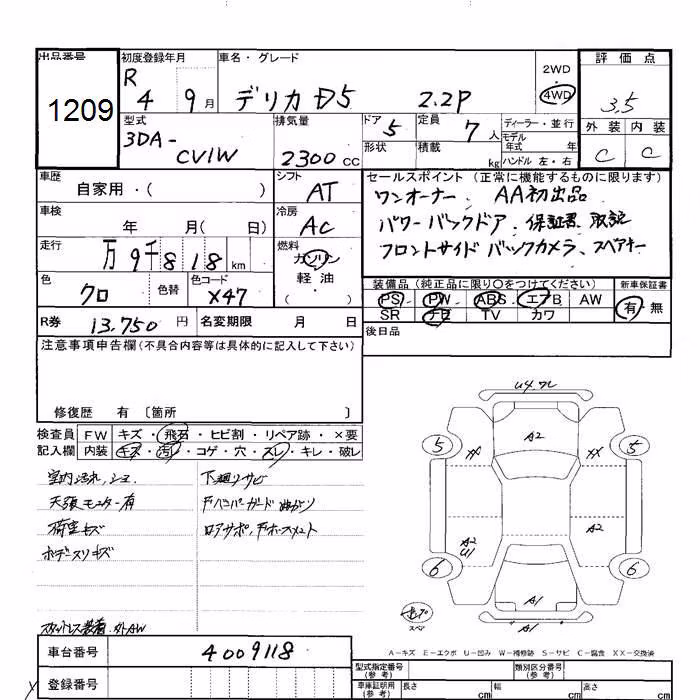 出品番号 初度登録年月 車名・グレード 2WD 評価点
1209 R 4 9月 デリカ D5 2.2P 4WD 3.5
型式 排気量 ドア 定員 ディーラー・並行 外装 内装
3DA-CV1W 2300cc 5 7人 モデル年式 年 C C
形状 積載 kg ハンドル 左・右
車歴 シフト セールスポイント(正常に機能するものに限ります)
自家用・( ) AT ワンオーナー、AA初出品
車検 冷房 パワーバックドア、保証書 取説
年 月( 日) AC フロントサイドバックカメラ、スペアキー
走行 燃料
万9千818km ガソリン
軽油
( )
色 色替 色コード 装備品(純正品に限り〇をつけてください) 新車保証書
クロ X47 PS PW ABS エアB AW 有・無
SR ナビ TV カワ
R券 13,750円 名変期限 月 日 後日品
注意事項申告欄(不具合内容等は具体的に記入して下さい)
修復歴 有 〔箇所 〕
検査員 FW キズ・飛石・ヒビ割・リペア跡・×要
記入欄 内装 キズ・汚レ・コゲ・穴・スレ・キレ・破レ
室内汚れ、 下廻りサビ
天張モニター有 Fバンパーガード曲がり
荷室キズ
ボデースリキズ
スタットレス装着、
車台番号 4009118
登録番号
U4
A2
5 XX 5
A2
A2
U1
6 6
A1
スペア A1
A-キズ E-エクボ U-凹み W-補修跡 S-サビ C-腐食 XX-交換済
型式指定番号(参考) 類別区分番号(参考)
車庫証明用(参考) 長さ cm 幅 cm 高さ cm